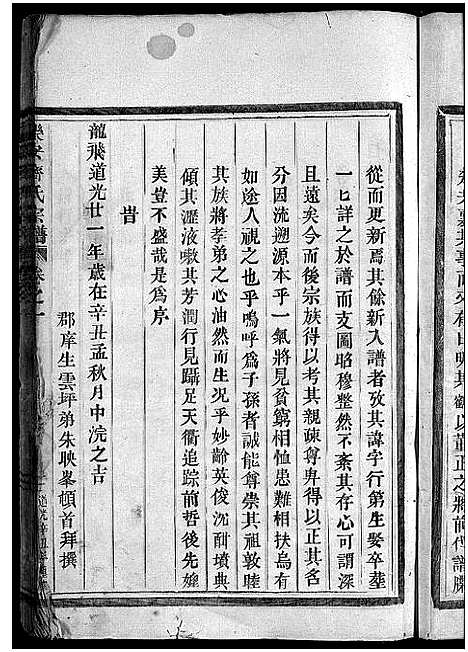 從而更新焉其餘新入譜者攷其諱字行第生娶卒塟
一七詳之於譜而支圖昭穆整然不紊其存心可謂深
且遠矣今而後宗族得以考其親疎尊卑得以正其名
分因流遡源本乎一氣將見貧窮相恤患難相扶烏有
如途人視之也乎嗚呼爲子孫者誠能尊崇其祖敦睦
其族將孝弟之心油然而生况乎妙齡英俊沉酣墳典
傾其瀝液嗽其芳潤行見躡足天衢追踪前哲後先媲
美豈不盛哉是爲序
旹
龍飛道光廿一年歲在辛丑孟秋月中浣之吉
郡庠生雲坪弟朱映峯頓首拜撰
齊氏宗譜
卷之一